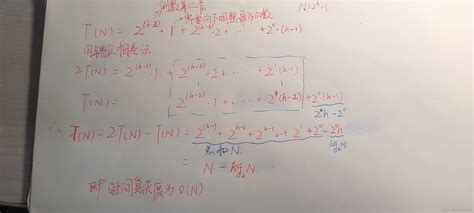 N=2^h-1
T(N) = 2^(h-2)·1 + 2^(h-3)·2 + ······ + 2^0·(h-1)
用错位相差法
2T(N) = 2^(h-1)·1 + 2^(h-2)·2 + ······ + 2^1(h-1)
T(N)= 2^(h-2)·1 + ······ + 2^1(h-2) + 2^0(h-1)
2^0h-2^0
T(N) = 2T(N) - T(N) = 2^(h-1) + 2^(h-2) + 2^(h-3) ··· + 2^1 + 2^0 - 2^0h
N log₂N
= N - log₂N
即 时间复杂度为 O(N)